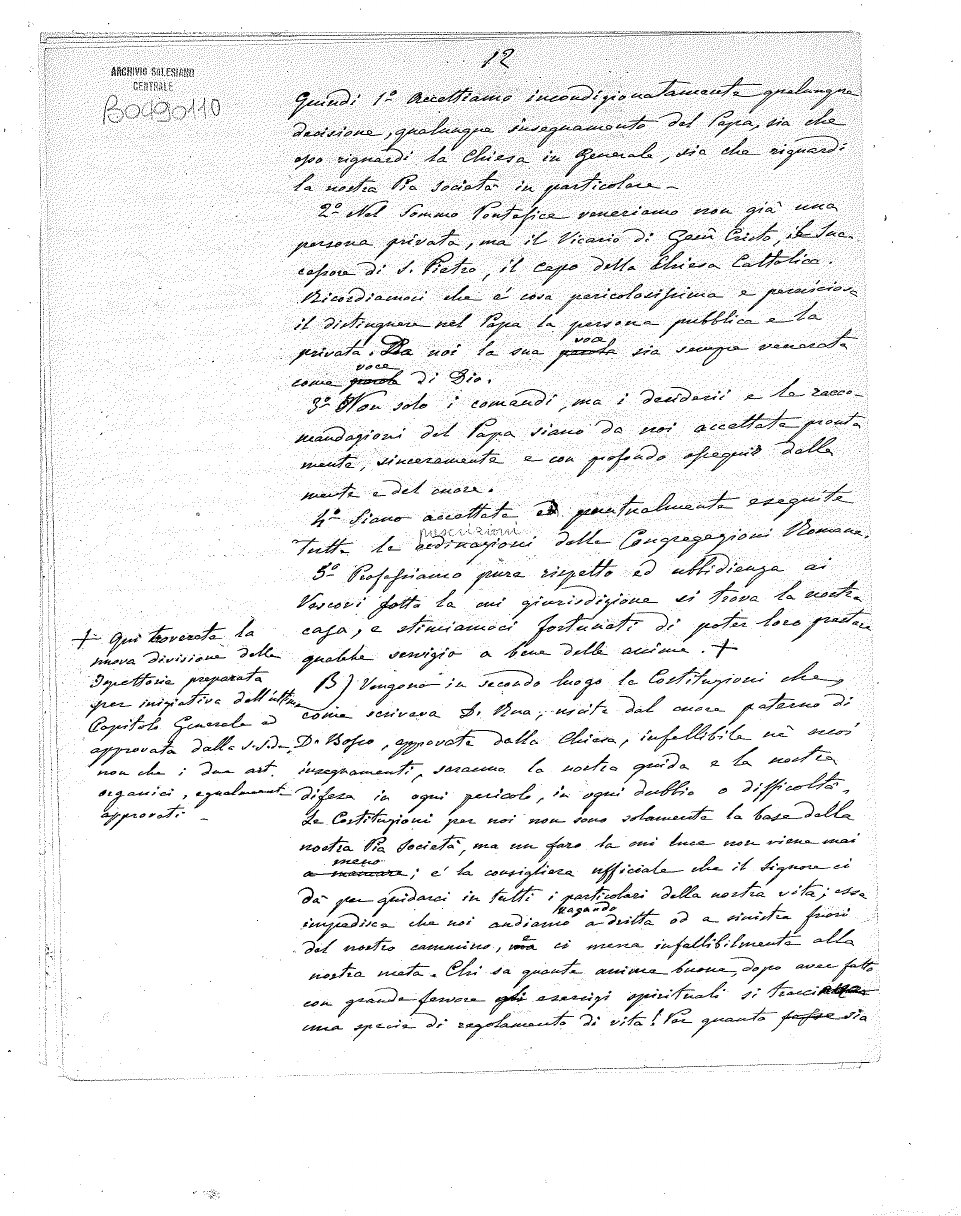 12
ARCHIVIO SALESIANO
CENTRALE
B0490110
Quindi 1º Accettiamo incondizionatamente qualunque
decisione, qualunque insegnamento del Papa, sia che
esso riguardi la Chiesa in Generale, sia che riguardi
la nostra Pia Società in particolare –
2º Nel Sommo Pontefice veneriamo non già una
persona privata, ma il Vicario di Gesù Cristo, il Suc-
cessore di S. Pietro, il capo della Chiesa Cattolica.
Ricordiamoci che è cosa pericolosissima e perniciosa
il distinguere nel Papa la persona pubblica e la
privata. Da noi la sua parola voce sia sempre venerata
come parola voce di Dio.
3º Non solo i comandi, ma i desiderii e le racco-
mandazioni del Papa siano da noi accettate pronta
mente, sinceramente e con profondo ossequio della
mente e del cuore.
4º Siano accettate e puntualmente eseguite
tutte le ordinazioni prescrizioni delle Congregazioni Romane.
5º Professiamo pure rispetto ed ubbidienza ai
Vescovi sotto la cui giurisdizione si trova la nostra
casa, e stimiamoci fortunati di poter loro prestare
qualche servigio a bene delle anime. +
+ Qui troverete la
nuova divisione delle
Ispettorie preparata
per iniziativa dell'ultimo
Capitolo Generale e
approvata dalla S. Sede,
non che i due art.
organici, egualment
approvati –
B) Vengono in secondo luogo le Costituzioni che,
come scriveva D. Rua, uscite dal cuore paterno di
D. Bosco, approvate dalla Chiesa, infallibile ne' suoi
insegnamenti, saranno la nostra guida e la nostra
difesa in ogni pericolo, in ogni dubbio o difficoltà.
Le Costituzioni per noi non sono solamente la base della
nostra Pia Società, ma un faro la cui luce non viene mai
a mancare meno; è la consigliera ufficiale che il Signore ci
dà per guidarci in tutti i particolari della nostra vita; essa
impedisce che noi andiamo vagando a dritta od a sinistra fuori
del nostro cammino, e ci mena infallibilmente alla
nostra meta. Chi sa quante anime buone, dopo aver fatto
con grande fervore gli esercizi spirituali si tracci
una specie di regolamento di vita! Per quanto fosse sia